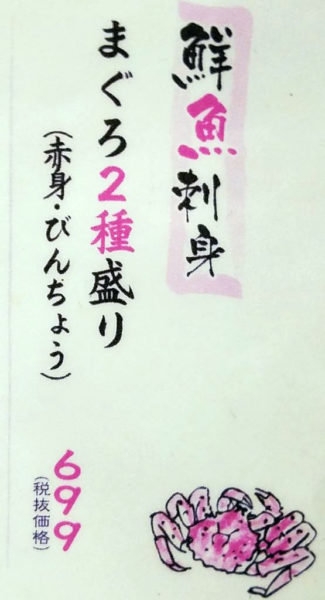 鮮魚刺身
まぐろ2種盛り
(赤身・びんちょう)
699
(税抜価格)